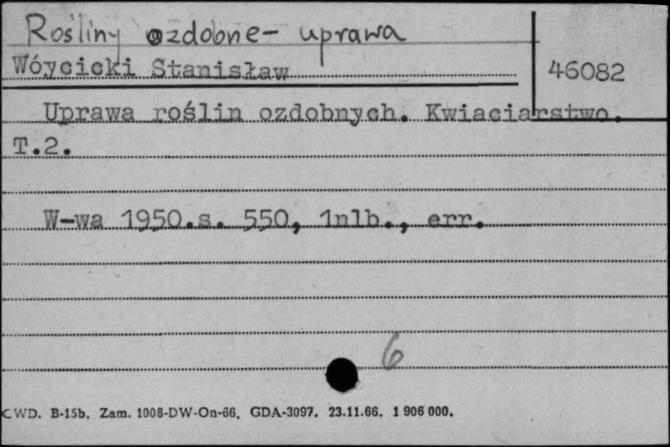 Rośliny ozdobne - uprawa
Wóycicki Stanisław
46082
Uprawa roślin ozdobnych. Kwiaciarstwo.
T.2.
W-wa 1950.s. 550, 1nlb., err.
6
CWD. B-15b. Zam. 1008-DW-On-66. GDA-3097. 23.11.66. 1 906 000.